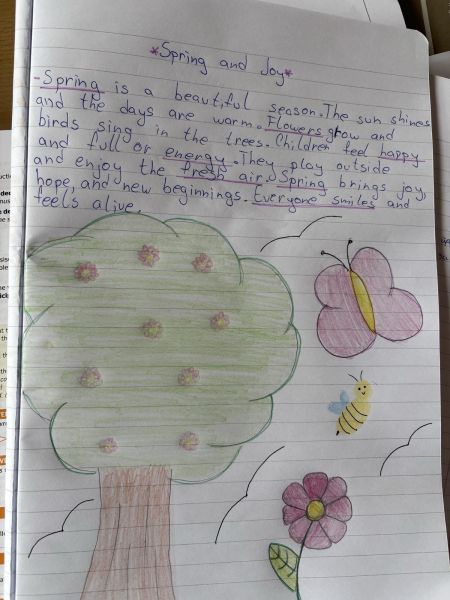 *Spring and Joy*
-Spring is a beautiful season. The sun shines
and the days are warm. Flowers grow and
birds sing in the trees. Children feel happy
and full or energy. They play outside
and enjoy the fresh air. Spring brings joy,
hope, and new beginnings. Everyone smiles and
feels alive.